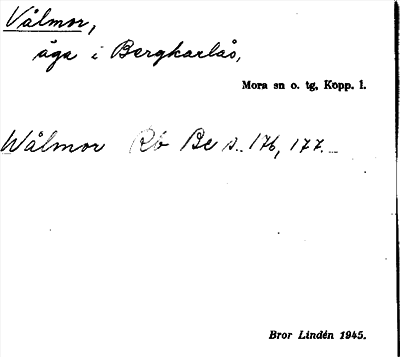 Vålmor,
äga i Bergkarlås,
Mora sn o. tg, Kopp. l.
Wålmor Rb Be s. 176, 177.
Bror Lindén 1945.